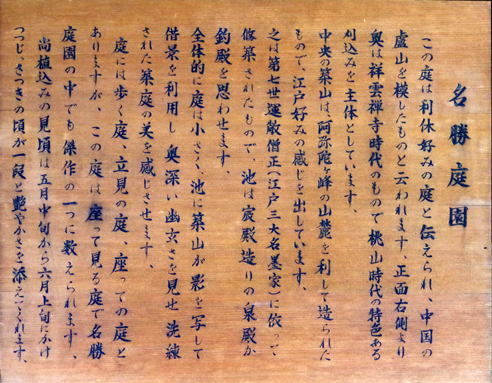 名勝庭園
この庭は利休好みの庭と伝えられ、中国の
盧山を模したものと云われます、正面右側より
奥は祥雲禅寺時代のもので桃山時代の特色ある
刈込みを主体としています、
中央の築山は、阿弥陀ヶ峰の山麓を利して造られた
もので、江戸好みの感じを出しています、
之は第七世運敞僧正(江戸三大名墨家)に依って
修築されたもので、池は寝殿造りの泉殿か
釣殿を思わせます、
全体的に庭は小さく、池に築山が影を写して
借景を利用し奥深い幽玄さを見せ洗練
された築庭の美を感じさせます、
庭には歩く庭、立見の庭、座っての庭と
ありますが、この庭は座って見る庭で名勝
庭園の中でも傑作の一つに数えられます、
尚植込みの見頃は五月中旬から六月上旬にかけ
つつじ、さつきの頃が一段と艶やかさを添えてくれます、